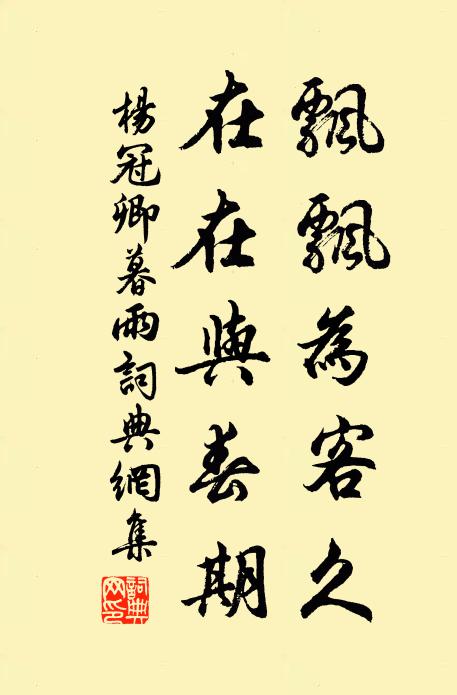 飄飄為客久
在在與春期
楊冠卿暮雨詞典網集
詞典網印